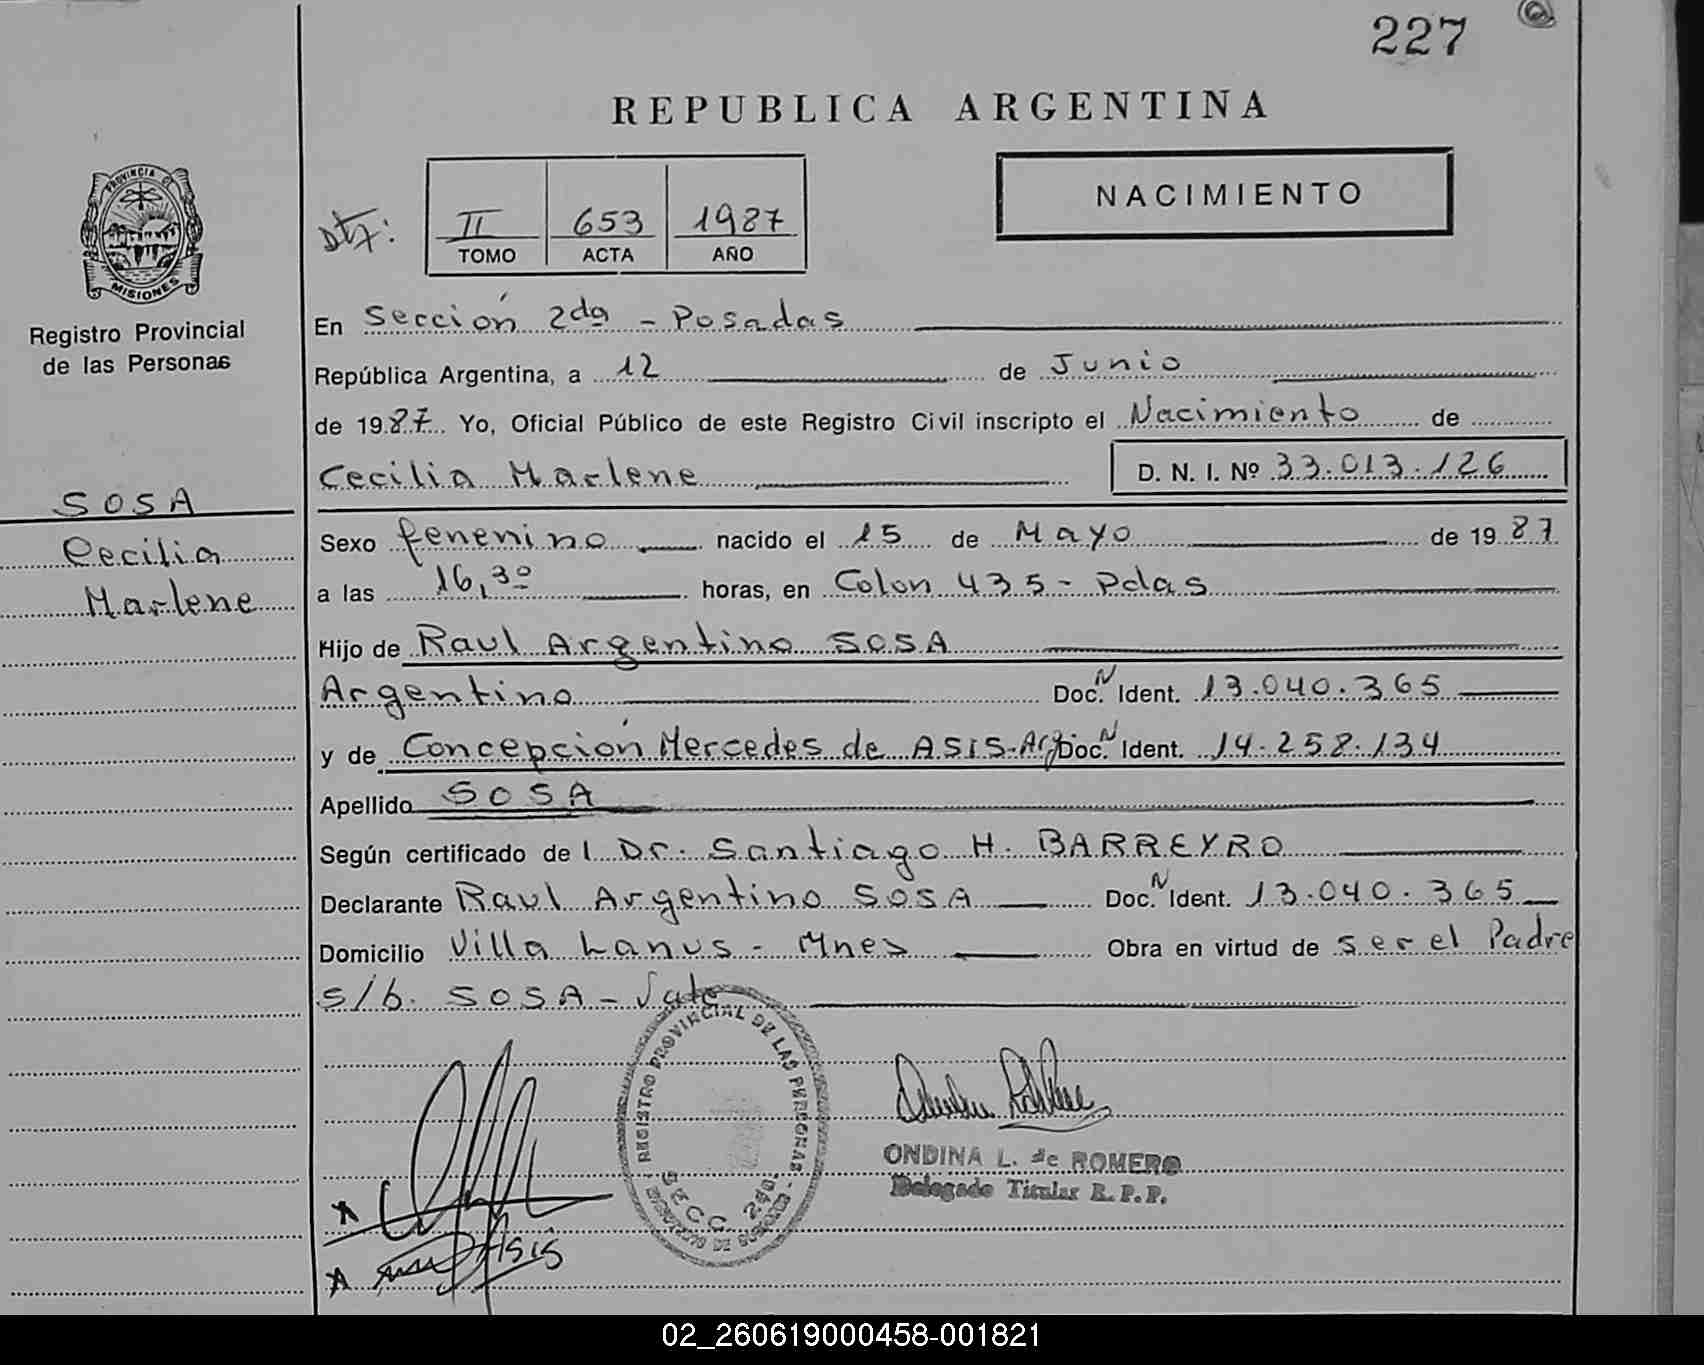 227
REPUBLICA ARGENTINA
NACIMIENTO
II 653 1987
TOMO ACTA AÑO
PROVINCIA DE
MISIONES
Registro Provincial
de las Personas
SOSA
Cecilia
Marlene
En Sección 2da - Posadas
República Argentina, a 12 de Junio
de 1987 Yo, Oficial Público de este Registro Civil inscripto el Nacimiento de
Cecilia Marlene D. N. I. Nº 33.013.126
Sexo fenenino nacido el 15 de Mayo de 1987
a las 16,30 horas, en Colon 435 - Pdas
Hijo de Raul Argentino SOSA
Argentino Doc. N Ident. 13.040.365
y de Concepción Mercedes de ASIS - Arg Doc. N Ident. 14.258.134
Apellido SOSA
Según certificado de l Dr. Santiago H. BARREYRO
Declarante Raul Argentino SOSA Doc. N Ident. 13.040.365
Domicilio Villa Lanus - Mnes Obra en virtud de ser el Padre
s/b. SOSA - Vale
REGISTRO PROVINCIAL DE LAS PERSONAS
SECC. 2da
ONDINA L. de ROMERO
Delegado Titular R. P. P.
Asis
02_260619000458-001821